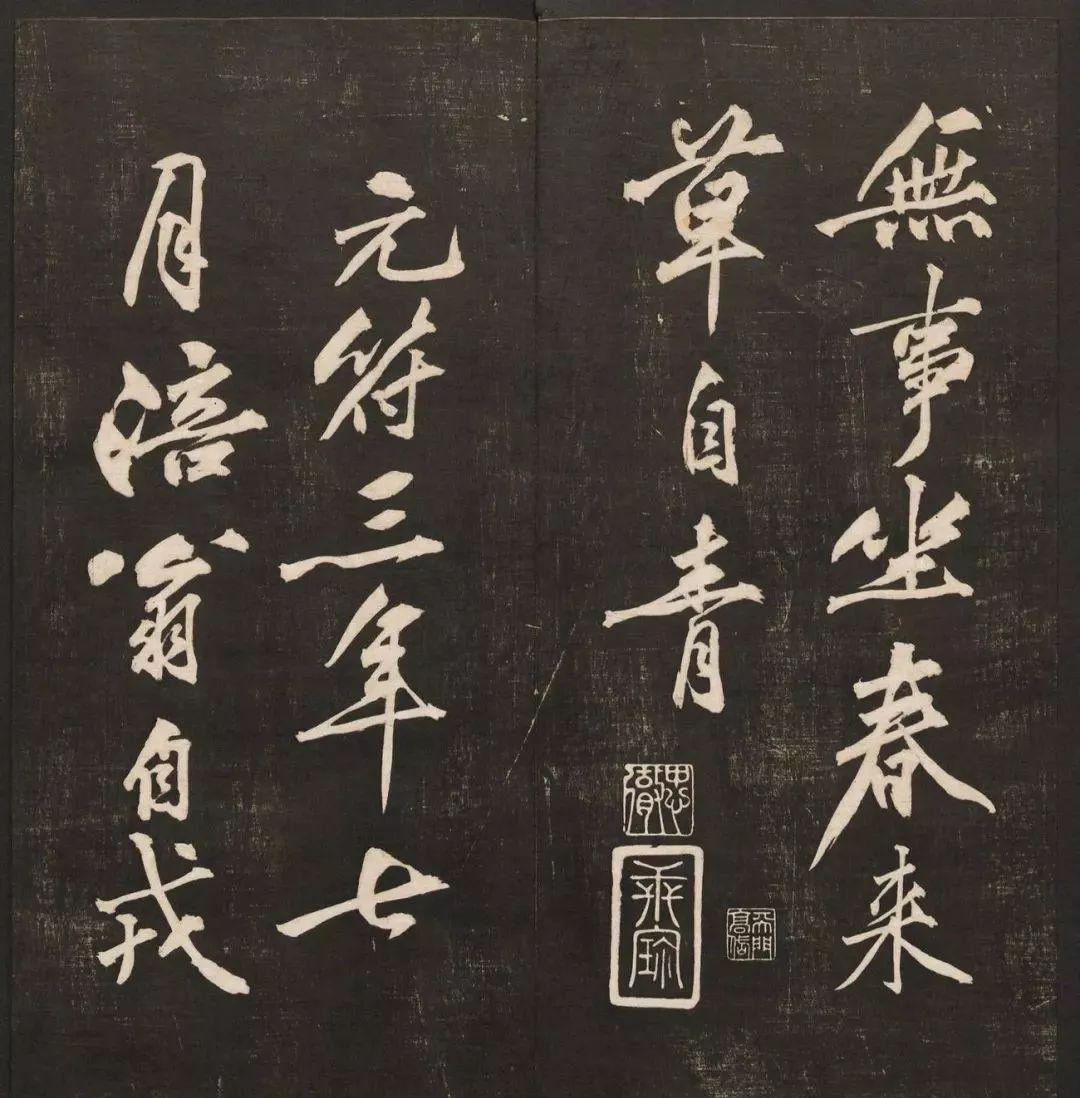 無事坐春来
草自青
元符三年七
月涪翁自戎